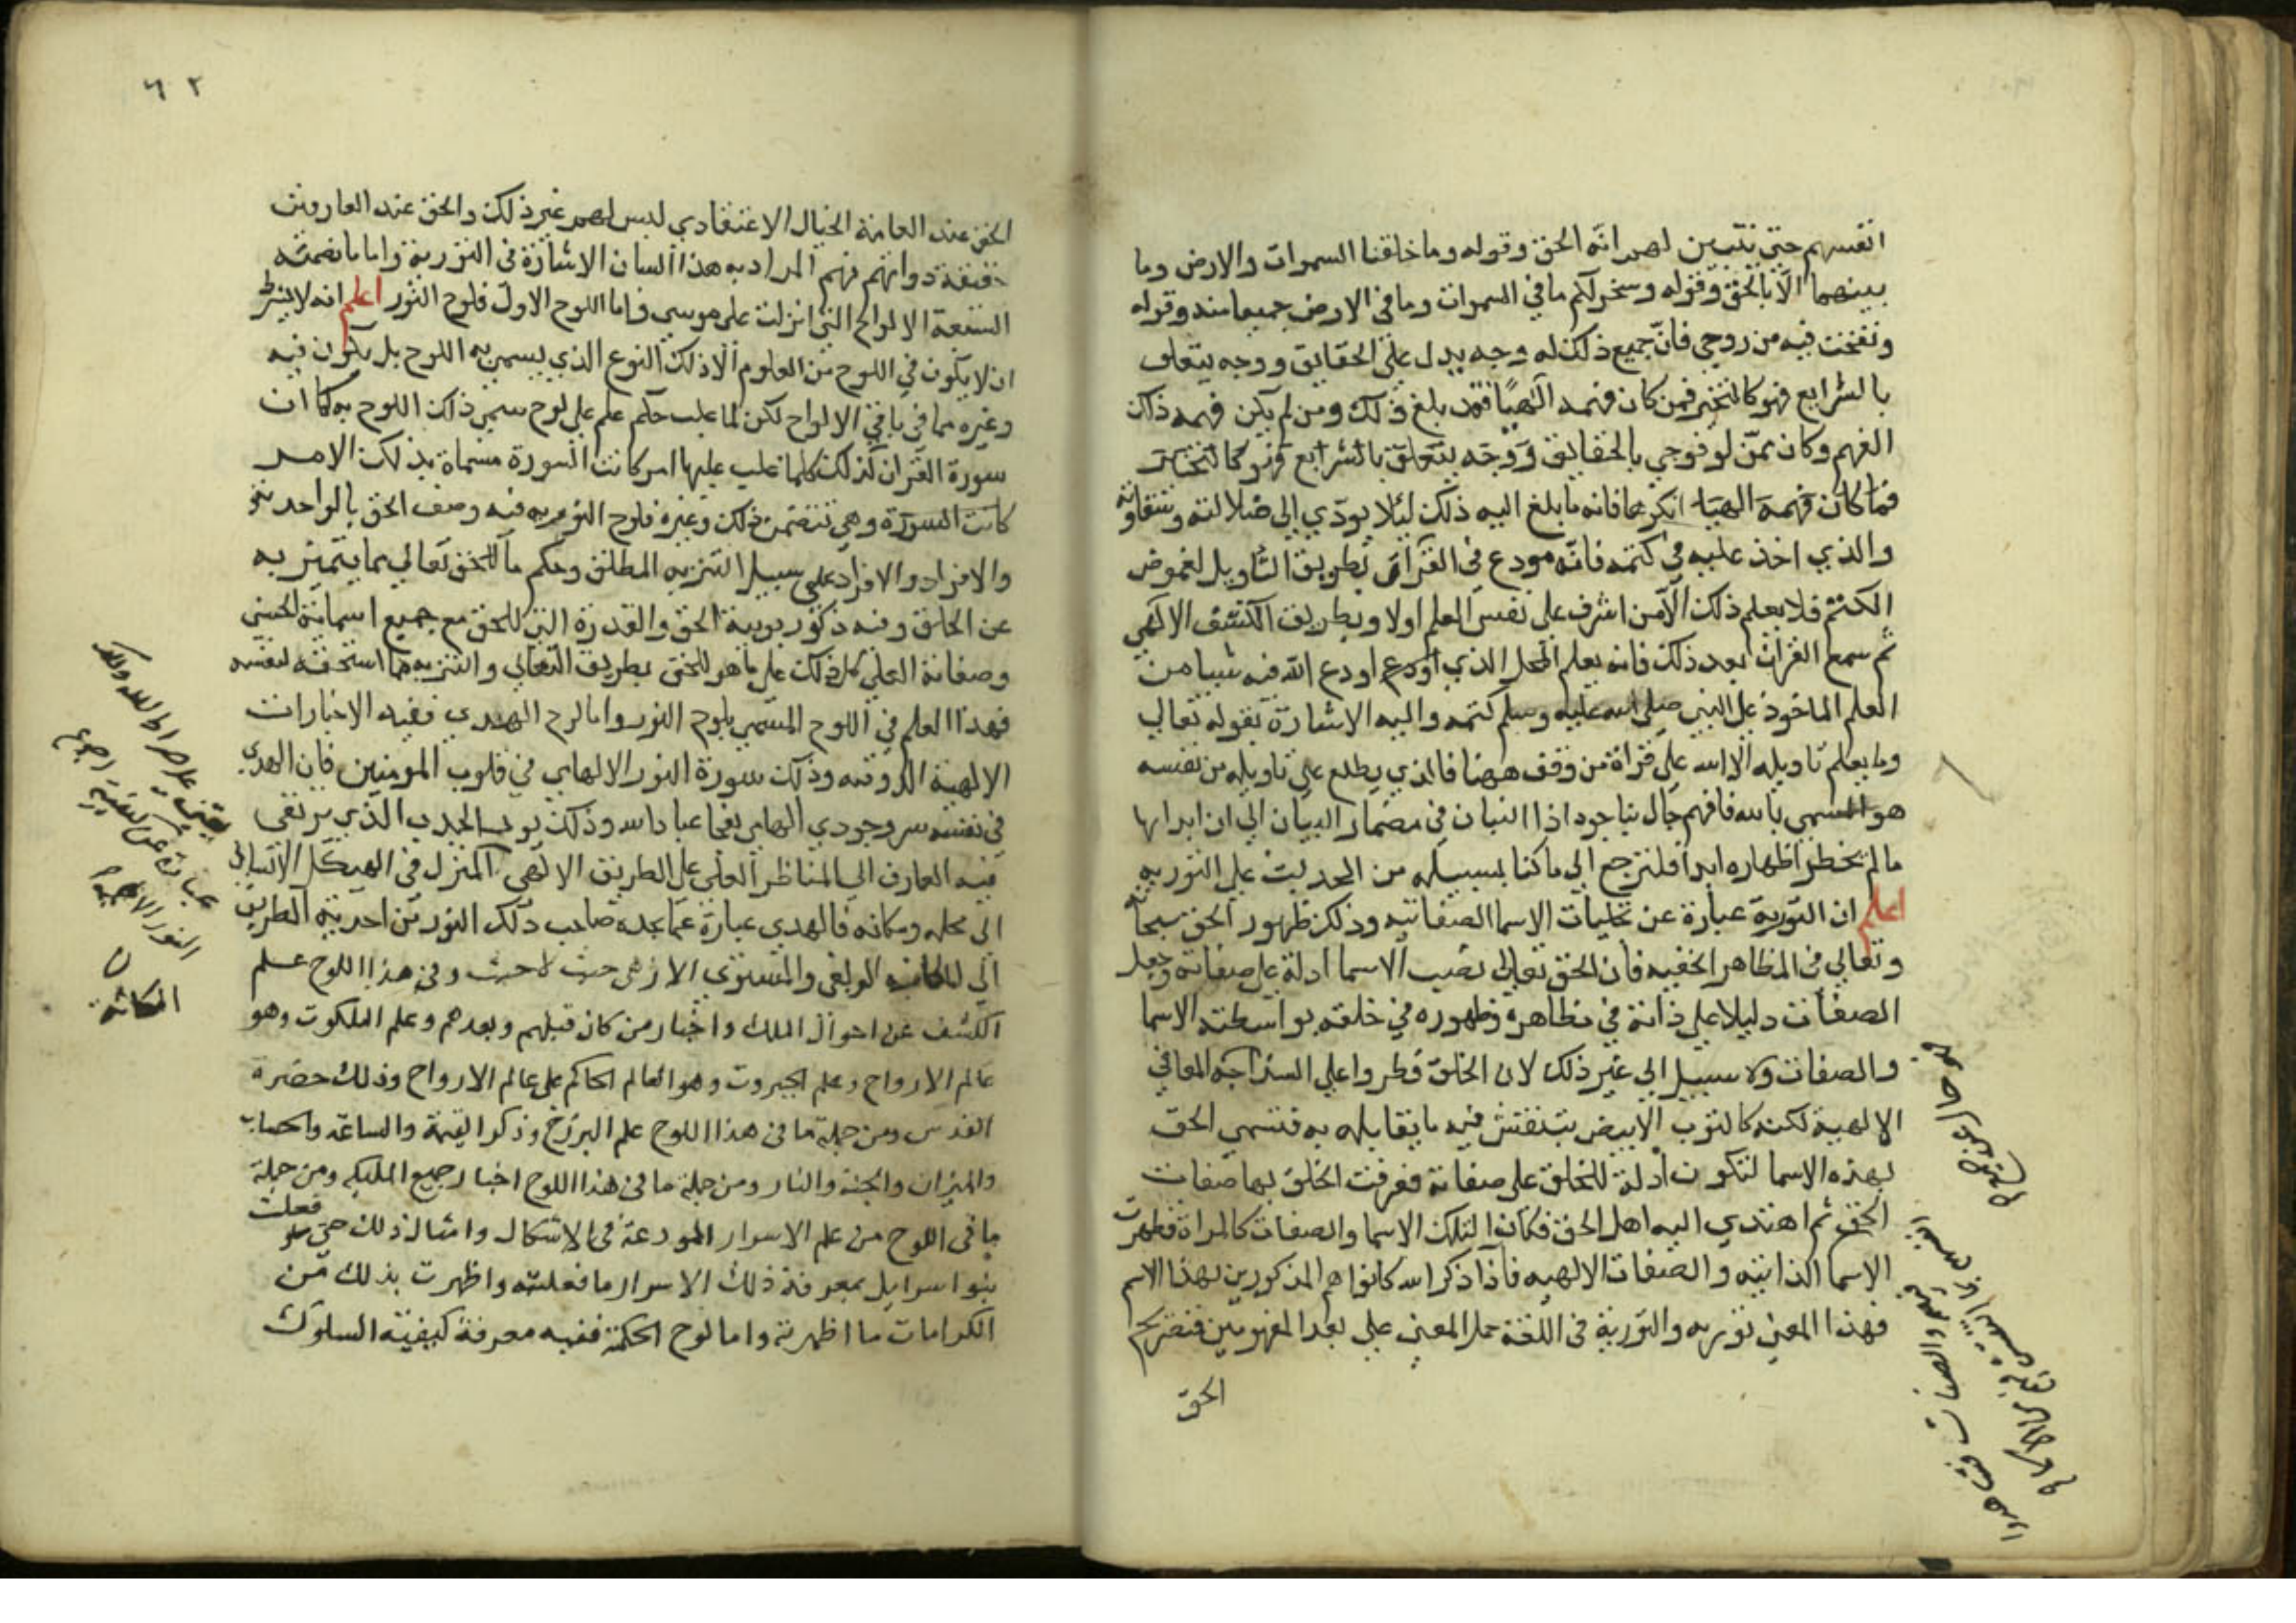 انفسهم حتى نتبين لهم انه الحق وقوله وما خلقنا السموات والارض وما
بينهما الا بالحق وقوله وسخر لكم ما في السموات وما في الارض جميعا منه وقوله
ونفخت فيه من روحي فان جميع ذلك له وجه يدل على الحقايق ووجه يتعلق
بالشرايع فهو كالتخير فمن كان فهمه الهيا فقد بلغ ذلك ومن لم يكن فهمه ذلك
الفهم وكان ممن لو فوجي بالحقايق ووجه يتعلق بالشرايع فهو كالتخير
فما كان فهمه الهيا انكرها فانه ما بلغ اليه ذلك لئلا يودي الى ضلالته وشقاوته
والذي اخذ عليه في كتمه فانه مودع في القران بطريق التاويل لغموض
الكتم فلا يعلم ذلك الا من اشرف على نفس العلم اولا وبطريق الكشف الالهي
ثم سمع القران بعد ذلك فانه يعلم المحل الذي اودع اودع الله فيه شيا من
العلم الماخوذ على النبي صلى الله عليه وسلم كتمه واليه الاشارة بقوله تعالى
وما يعلم تاويله الا الله على قراة من وقف ههنا فالذي يطلع على تاويله من نفسه
هو المسمى بالله فافهم جال بنا جود اذا التبان في مضمار البيان الى ان ابدا بها
ما لم يخطر اظهاره ابدا فلنرجع الى ما كنا بسبيله من الحديث على التورية
اعلم ان التورية عبارة عن تجليات الاسما الصفاتيه وذلك ظهور الحق سبحانه
وتعالى في المظاهر الخفيه فان الحق تعالى نصب الاسما ادلة على صفاته وجعل
الصفات دليلا على ذاته في مظاهره وظهوره في خلقه بواسطته الاسما
والصفات ولا سبيل الى غير ذلك لان الخلق فطروا على السذاجه المعاني
الالهية لكنه كالثوب الابيض ينتقش فيه ما يقابله به فتسمى الحق
بهذه الاسما لتكون ادلة للخلق على صفاته فعرفت الخلق بها صفات
الحق ثم اهتدي اليه اهل الحق فكانوا لتلك الاسما والصفات كالمراة فظهرت
الاسما الذاتيه والصفات الالهيه فاذا ذكر الله كانوا هم المذكورين بهذا الاسم
فهذا المعنى توريه والتورية في اللغة حمل المعنى على بعد المفهومين فتصريح
الحق
٦٢
الحق عند العامة الخيال الاعتقادي ليس لهم غير ذلك والحق عند العارفين
حقيقة ذواتهم فهم المراد به هذا لسان الاشارة في التورية واما ما تضمنته
السبعة الالواح التي انزلت على موسى فاما اللوح الاول فلوح النور اعلم انه لا يشترط
ان لا يكون في اللوح من العلوم الا ذلك النوع الذي يسمى به اللوح بل يكون فيه
وغيره مما في باقي الالواح لكن لما غلب حكم علم على لوح سمي ذلك اللوح به كما ان
سورة القران كذلك كلما غلب عليها امر كانت السورة مسماة بذلك الامر
كانت السورة وهي تتضمن ذلك وغيره فلوح النور به فيه وصف الحق بالواحديه
والافراد والافراد على سبيل التنزيه المطلق وحكم ما للحق تعالى مما يتميز به
عن الخلق وفيه ذكر ربوبية الحق والقدرة التي للحق مع جميع اسمائه الحسنى
وصفاته العلى كل ذلك على ما هو للحق بطريق التعالى والتنزيه مما استحقه لنفسه
فهذا العلم في اللوح المسمى بلوح النور واما لوح الهدي ففيه الاخبارات
الالهية الذوقيه وذلك سورة النور الالهامي في قلوب المومنين فان الهدي
في نفسه سر وجودي الهامي يفجا عباد الله وذلك نور الجذب الذي يرتقي
فيه العارف الى المناظر العلى على الطريق الالهي المنزل في الهيكل الانساني
الى محله ومكانه فالهدي عبارة عما يجده صاحب ذلك النور من احدية الطريق
الى المكانه الزلفى والمستوى الازهى حيث لا حيث وفي هذا اللوح علم
الكشف عن احوال الملل واخبار من كان قبلهم وبعدهم وعلم الملكوت وهو
عالم الارواح وعلم الجبروت وهو العالم الحاكم على عالم الارواح وذلك حضرة
القدس ومن جملة ما في هذا اللوح علم البرزخ وذكر القيمة والساعة والحساب
والميزان والجنه والنار ومن جملة ما في هذا اللوح اخبار جميع المليكه ومن جملة
ما في اللوح من علم الاسرار المودعة في الاشكال وامثال ذلك حتى فعلت
بنوا اسرايل بمعرفة ذلك الاسرار ما فعلته واظهرت بذلك من
الكرامات ما اظهرته واما لوح الحكمة ففيه معرفة كيفية السلوك